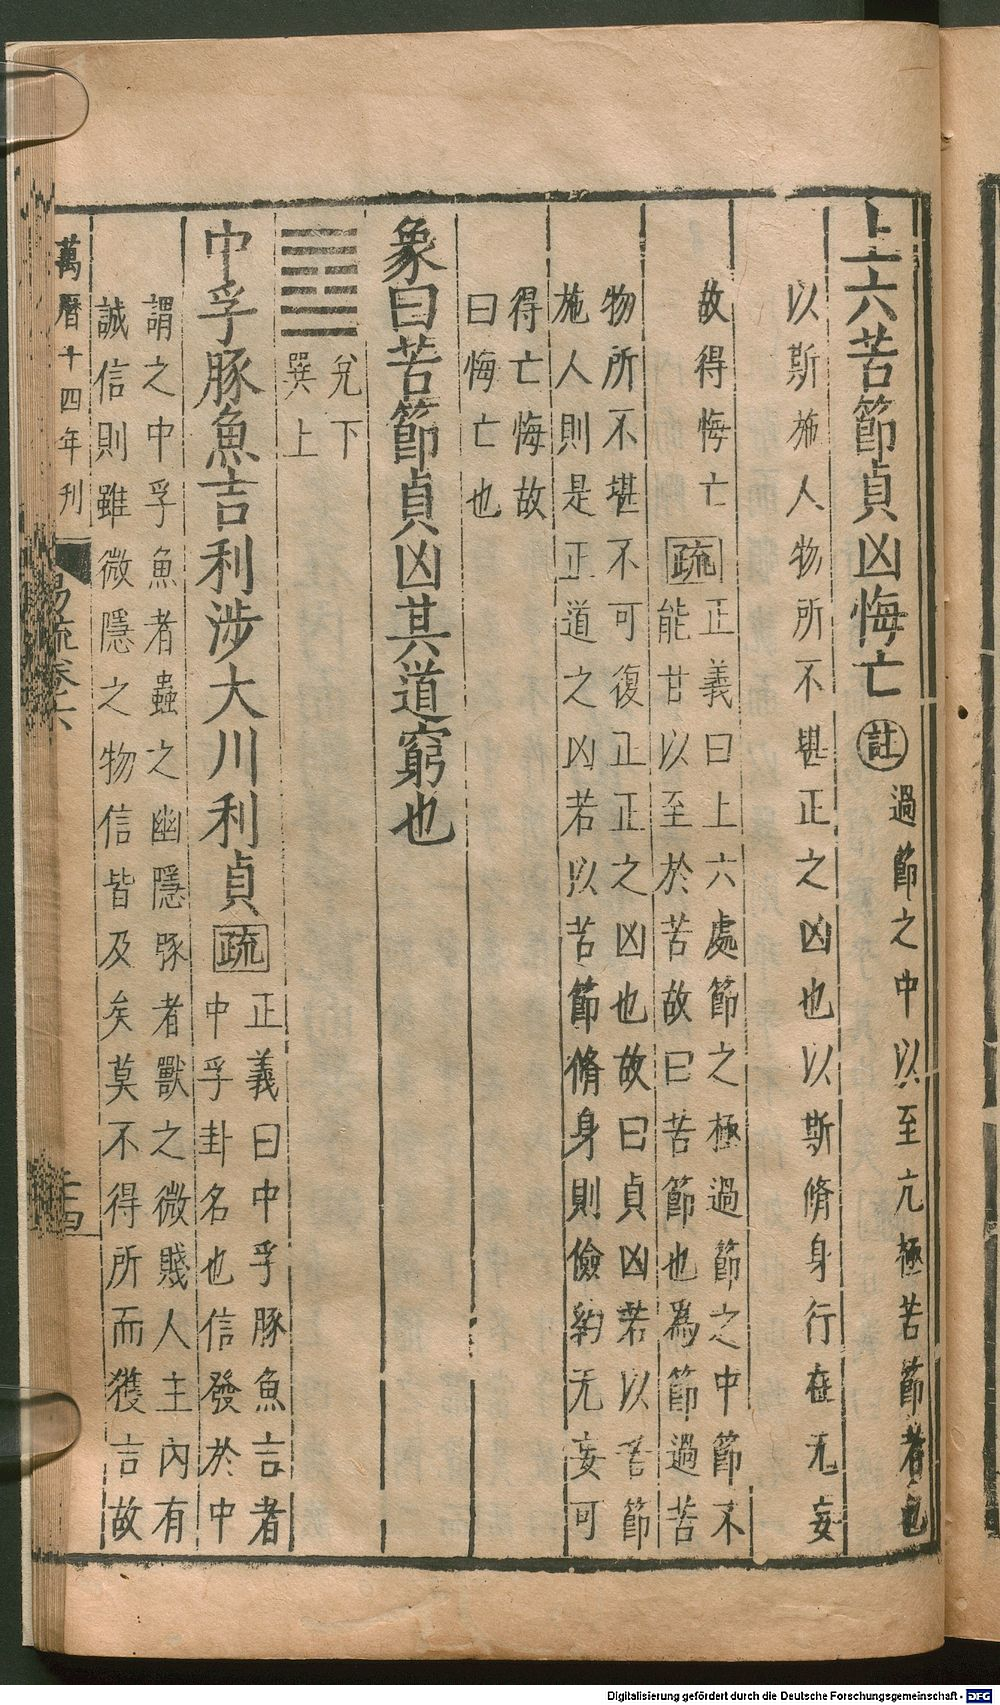 上六苦節貞凶悔亡註過節之中以至亢極苦節者也
以斯施人物所不堪正之凶也以斯脩身行在无妄
故得悔亡疏正義曰上六處節之極過節之中節不
能甘以至於苦故曰苦節也為節過苦
物所不堪不可復正正之凶也故曰貞凶若以苦節
施人則是正道之凶若以苦節脩身則儉約无妄可
得亡悔故
曰悔亡也
象曰苦節貞凶其道窮也
兌下
巽上
中孚豚魚吉利涉大川利貞疏正義曰中孚豚魚言者
中孚卦名也信發於中
謂之中孚魚者蟲之幽隱豚者獸之微賤人主內有
誠信則雖微隱之物信皆及矣莫不得所而獲言故
萬曆十四年刊
易疏卷六
十四
Digitalisierung gefördert durch die Deutsche Forschungsgemeinschaft - DFG